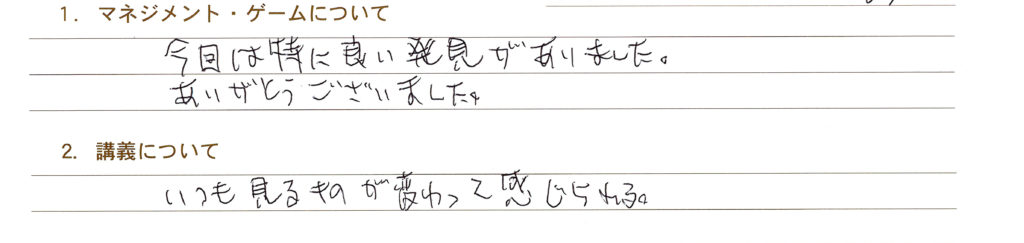 1. マネジメント・ゲームについて
今回は特に良い発見がありました。
ありがとうございました。
2. 講義について
いつも見るものが変わって感じられる。